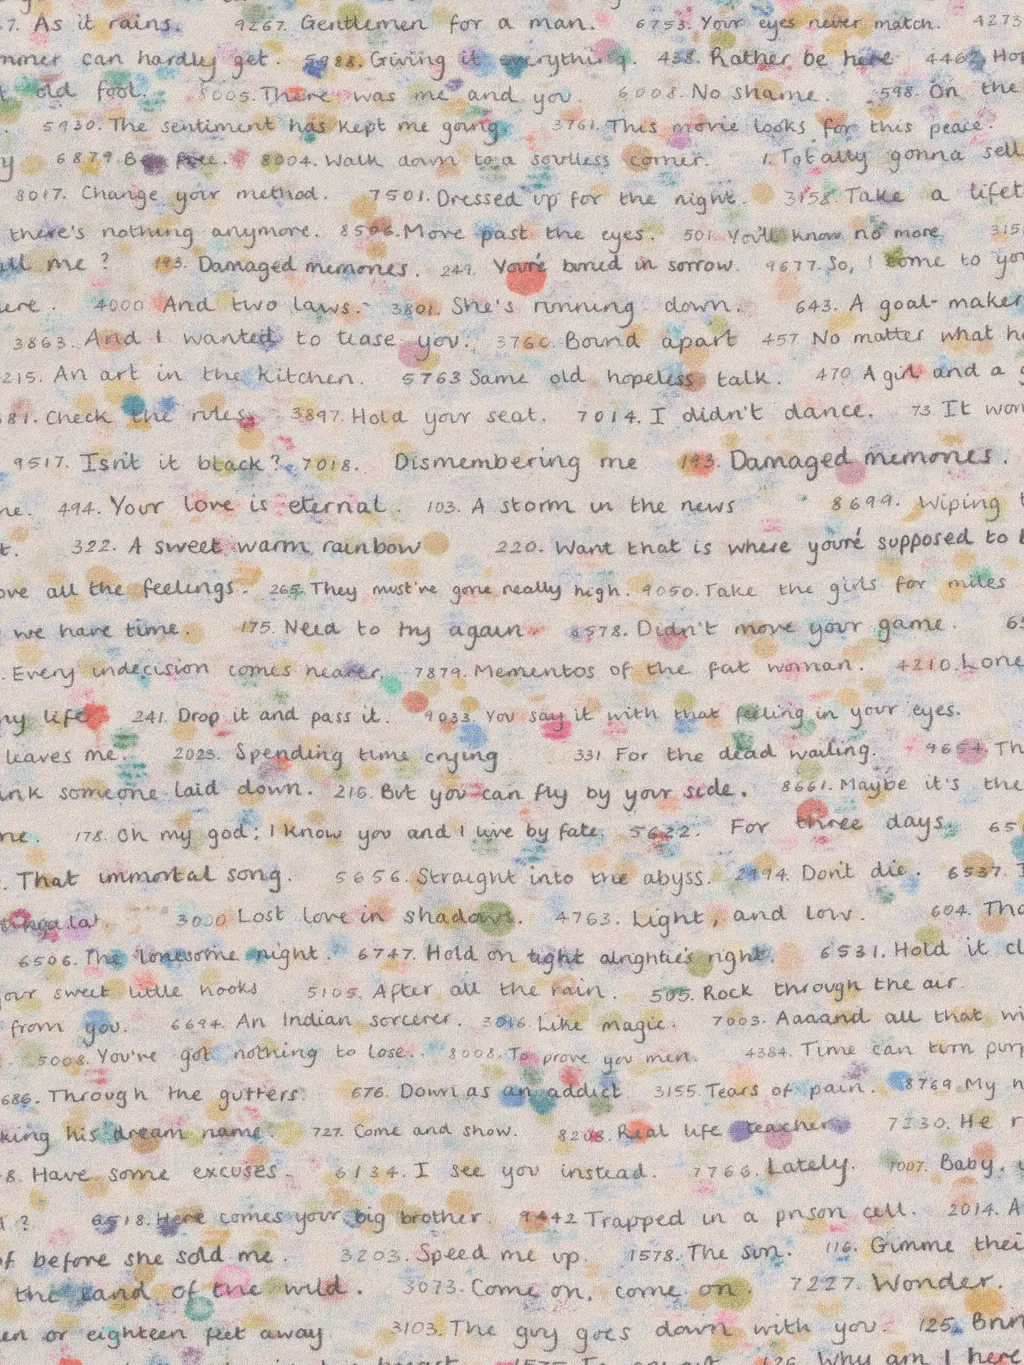 7. As it rains. 9267. Gentlemen for a man. 6753. Your eyes never match. 4273
mmer can hardly get. 5988. Giving it everything. 438. Rather be here 4462. Ho
old fool. 8005. There was me and you. 6008. No shame. 598. On the
5930. The sentiment has kept me going. 3761. This movie looks for this peace.
y 6879. Be free. 8004. Walk down to a soulless corner. 1. Totally gonna sell
8017. Change your method. 7501. Dressed up for the night. 3158. Take a lifet
there's nothing anymore. 8506. Move past the eyes. 501. You'll know no more. 315
ll me? 193. Damaged memories. 249. You're buried in sorrow. 9677. So, I come to yo
ere. 4000 And two laws. 3801. She's running down. 643. A goal-maker
3863. And I wanted to tease you. 3760. Bound apart 457 No matter what h
215. An art in the kitchen. 5763 Same old hopeless talk. 470 A girl and a g
81. Check the rules. 3897. Hold your seat. 7014. I didn't dance. 73. It won
9517. Isn't it black? 7018. Dismembering me 193. Damaged memories.
ne. 494. Your love is eternal. 103. A storm in the news 8699. Wiping t
t. 322. A sweet warm rainbow 220. Want that is where you're supposed to b
ove all the feelings. 265. They must've gone really high. 9050. Take the girls for miles
we have time. 175. Need to try again 8578. Didn't move your game. 65
. Every indecision comes nearer. 7879. Mementos of the fat woman. 4210. Lone
my life. 241. Drop it and pass it. 9033. You say it with that feeling in your eyes.
leaves me. 2023. Spending time crying 331 For the dead wailing. 9654. Th
nk someone laid down. 216. But you can fly by your side. 8661. Maybe it's the
ne. 178. Oh my god; I know you and I live by fate. 5622. For three days. 65
. That immortal song. 5656. Straight into the abyss. 2994. Don't die. 6537. I
3000 Lost love in shadows. 4763. Light, and low. 604. Tha
6506. The lonesome night. 6747. Hold on tight alrightie's right. 6531. Hold it cl
our sweet little hooks 5105. After all the rain. 505. Rock through the air.
from you. 6694. An Indian sorcerer. 3016. Like magic. 7003. Aaaand all that wi
5008. You've got nothing to lose. 8008. To prove you men. 4384. Time can turn purp
686. Through the gutters. 676. Down as an addict 3155. Tears of pain. 8769 My n
king his dream name. 727. Come and show. 8208. Real life teacher. 7230. He r
8. Have some excuses. 6134. I see you instead. 7766. Lately. 7007. Baby,
? 6518. Here comes your big brother. 9442 Trapped in a prison cell. 2014. A
of before she sold me. 3203. Speed me up. 1578. The sun. 116. Gimme thei
the land of the wild. 3073. Come on, come on. 7227. Wonder.
en or eighteen feet away 3103. The guy goes down with you. 125.
126. Why am I here